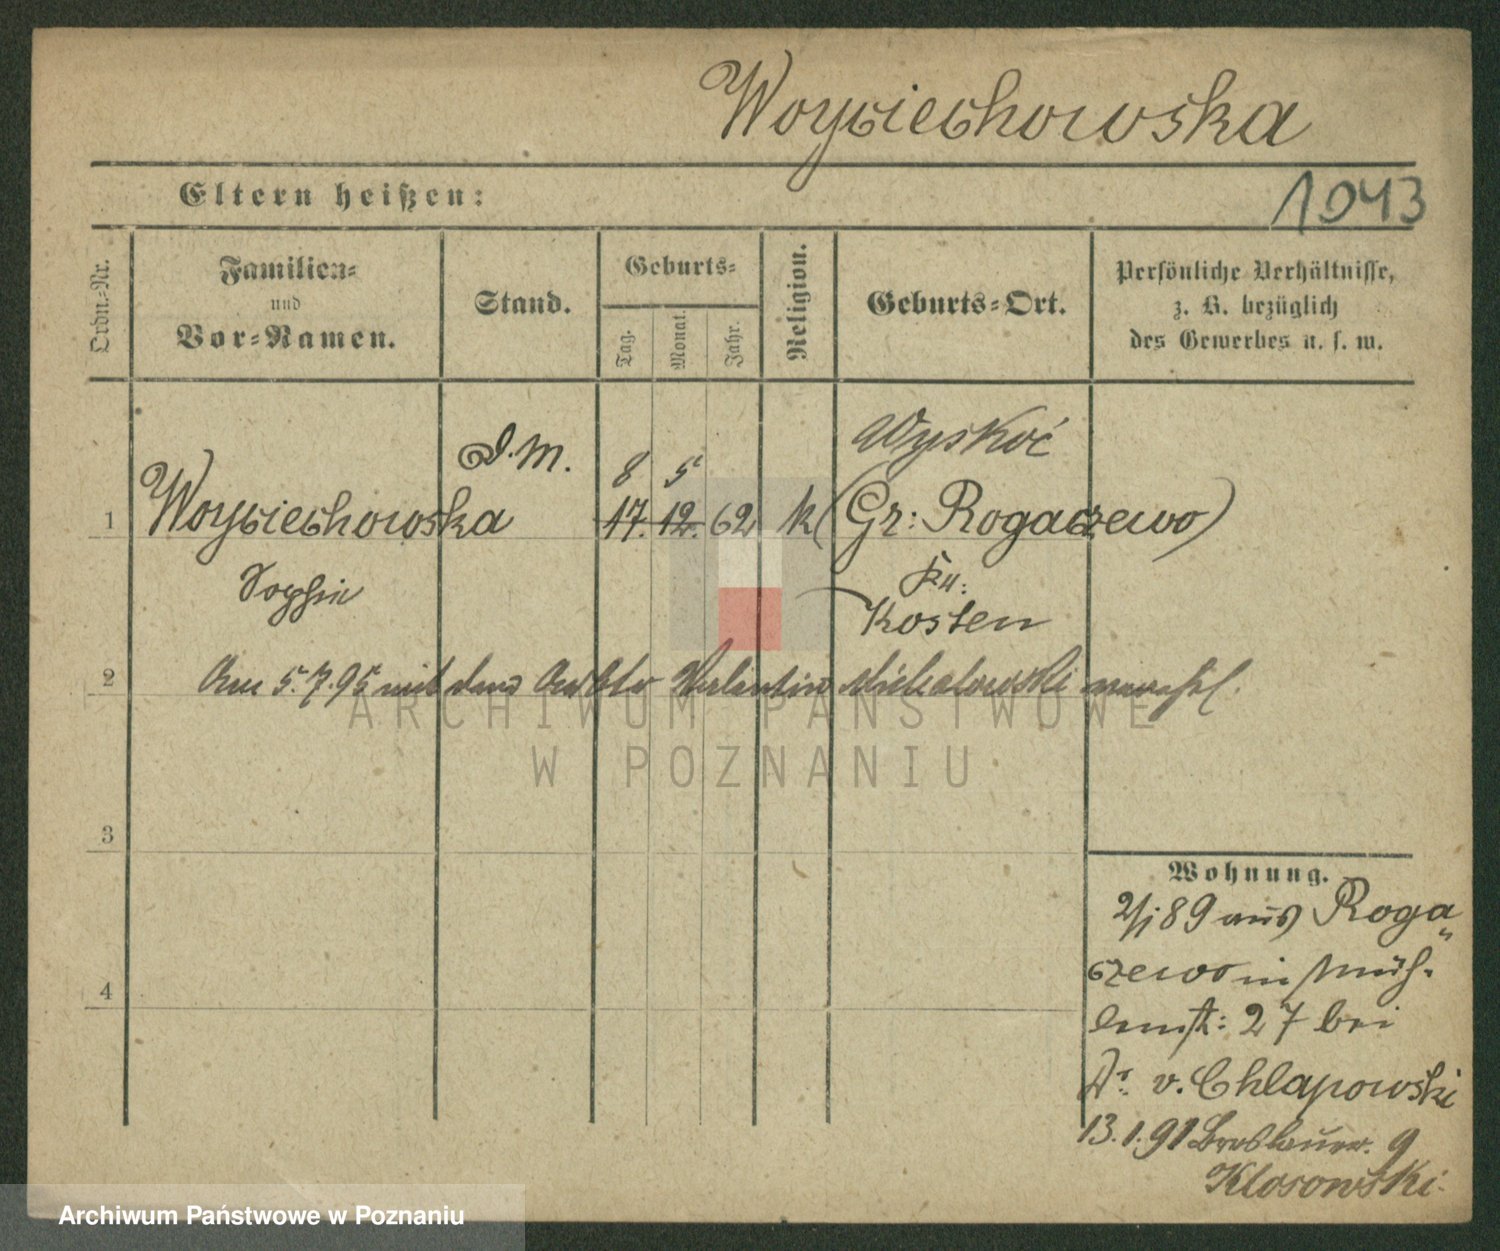 Woyciechowska
Eltern heißen:
1943
Ordn.-Nr.
Familien-
und
Vor-Namen.
Stand.
Geburts-
Tag.
Monat.
Jahr.
Religion.
Geburts-Ort.
Persönliche Verhältnisse,
z. B. bezüglich
des Gewerbes u. s. w.
D. M.
8 5
Wyskoć
1 Woyciechowska 17. 12. 62 k (Gr: Rogaczewo)
Sophie
Kr:
Kosten
2 Am 5.7.95 mit dem Valentin Michalowski verehel.
ARCHIWUM PAŃSTWOWE
W POZNANIU
3
Wohnung.
2/1 89 aus Roga„
czewo in Müh-
lenstr: 27 bei
4
Dr. v. Chlapowski
13.1.91 Breslauer. 9
Klosowski.
Archiwum Państwowe w Poznaniu